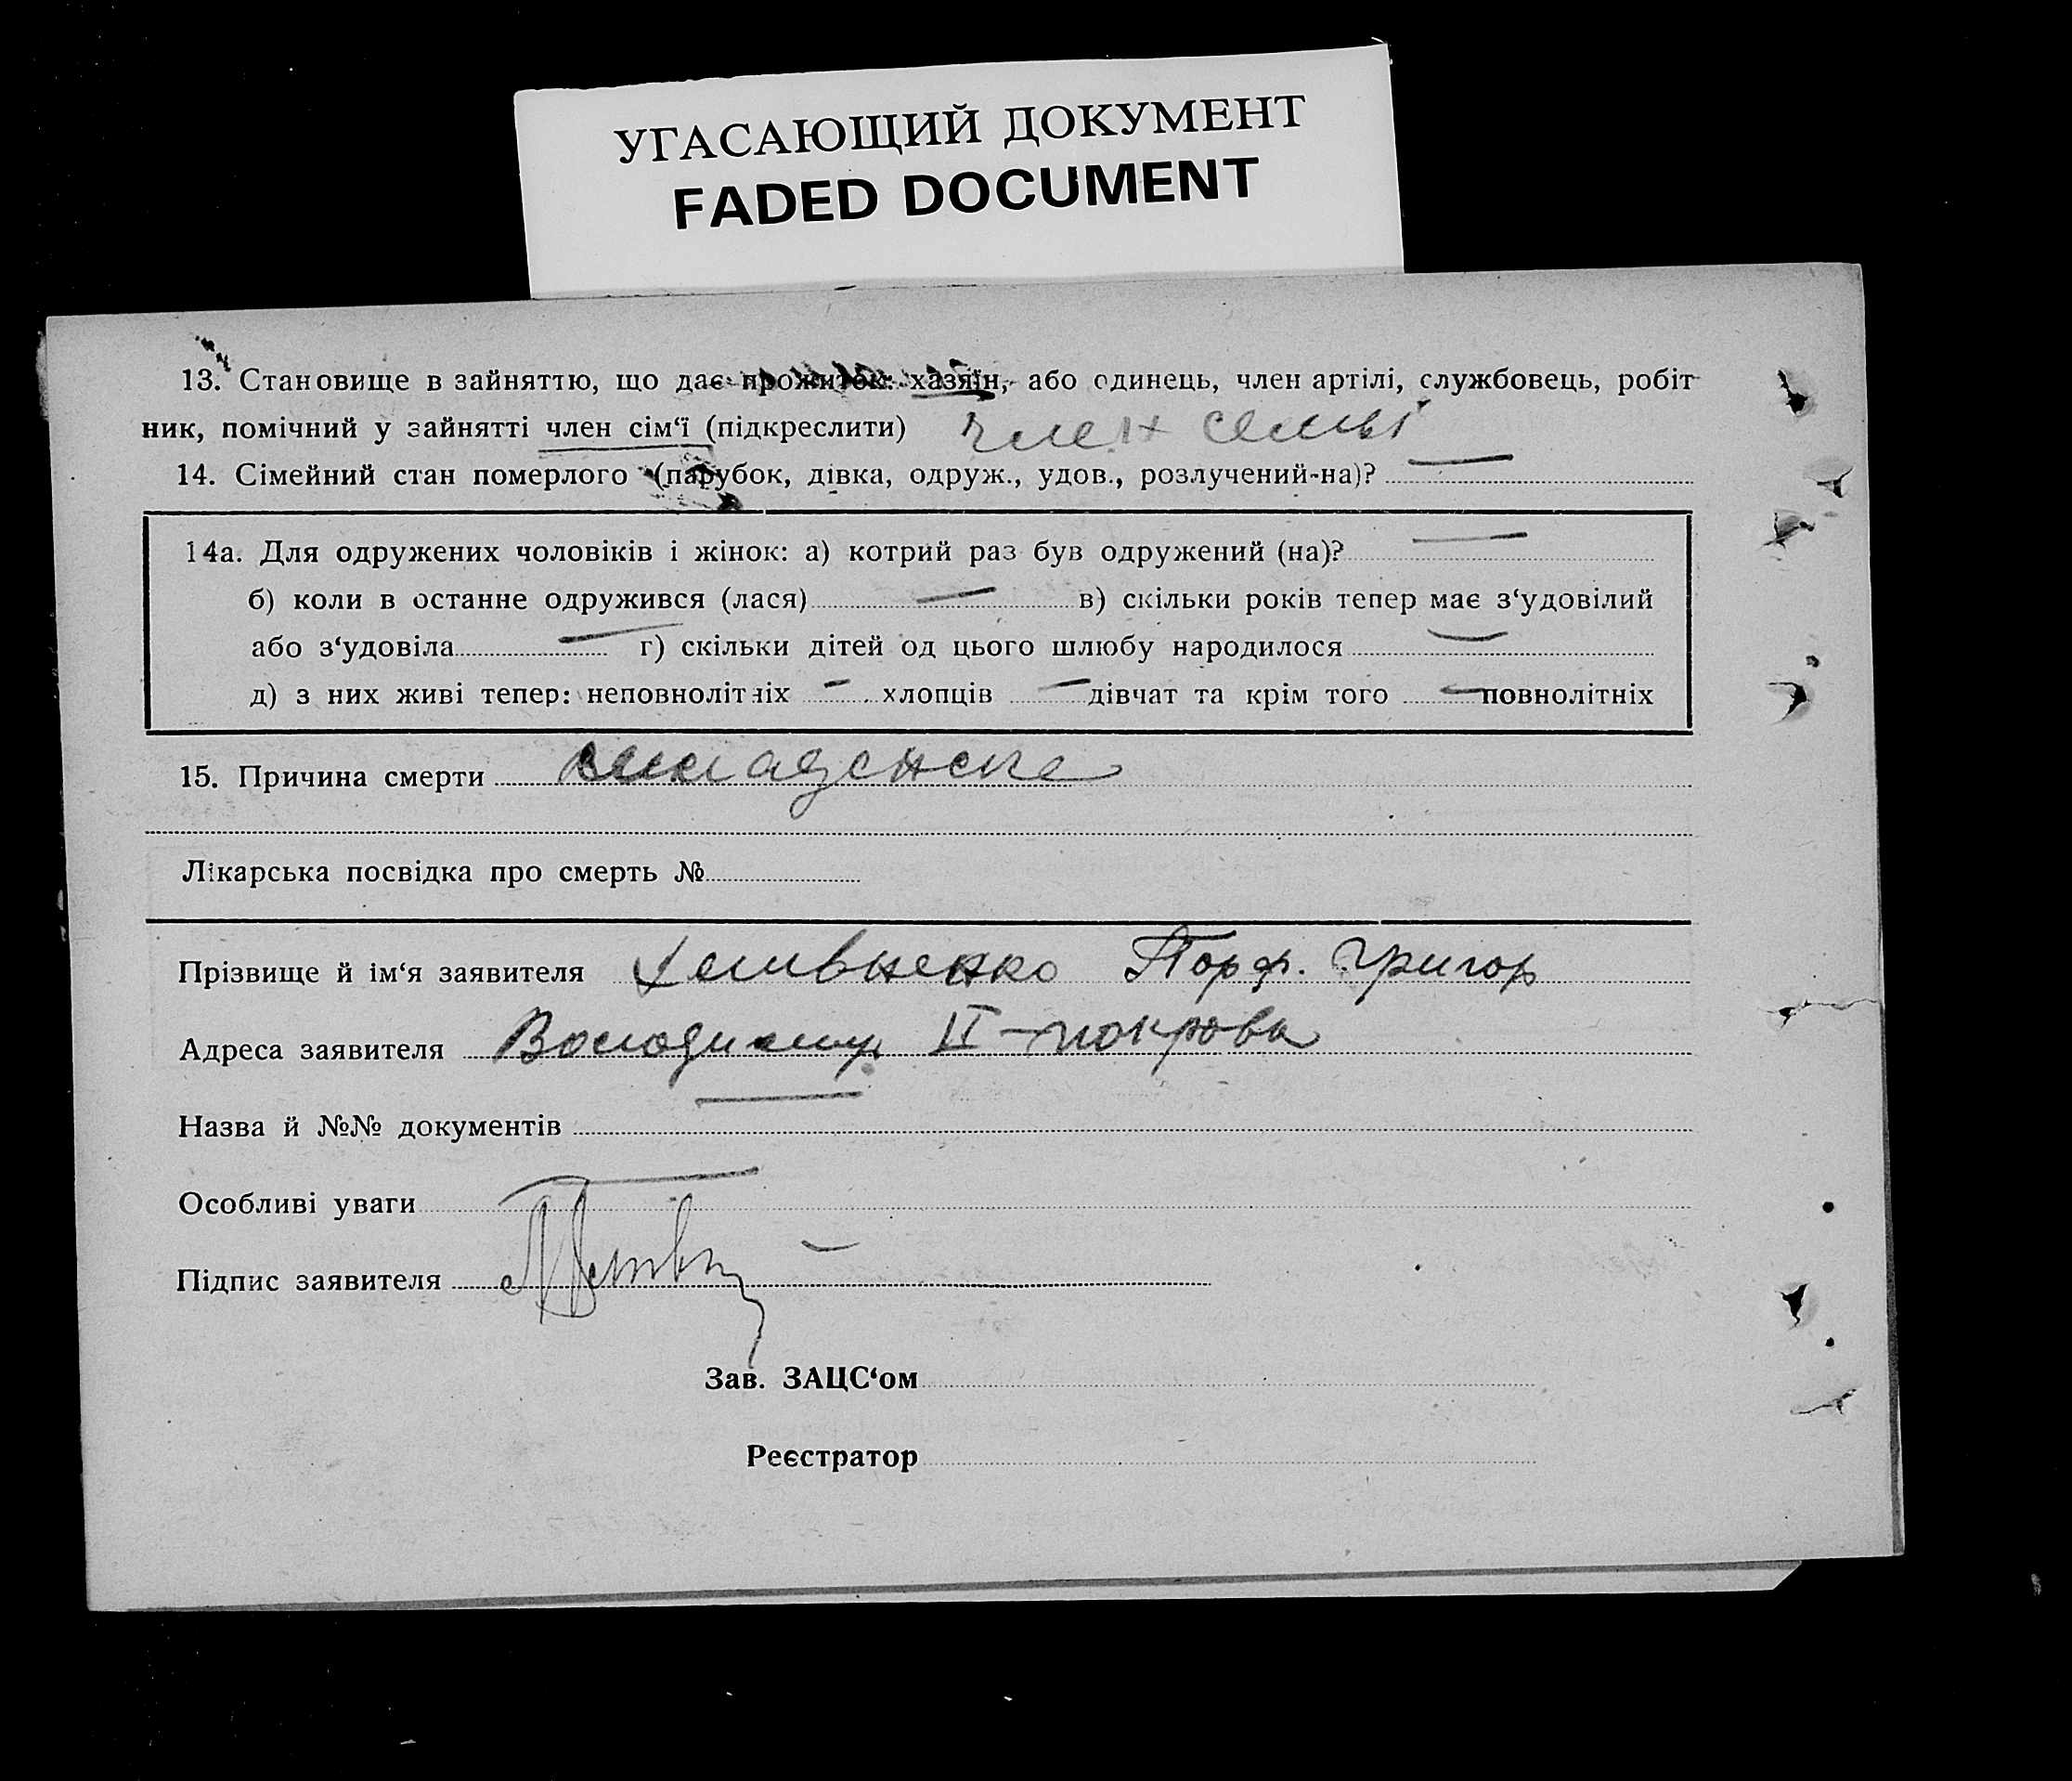 УГАСАЮЩИЙ ДОКУМЕНТ
FADED DOCUMENT
13. Становище в зайняттю, що дає прожиток: хазяїн, або одинець, член артілі, службовець, робіт
ник, помічний у зайнятті член сім‘ї (підкреслити) член семьі
14. Сімейний стан померлого (парубок, дівка, одруж., удов., розлучений-на)? —
14а. Для одружених чоловіків і жінок: а) котрий раз був одружений (на)? —
б) коли в останне одружився (лася) — в) скільки років тепер має з‘удовілий
або з‘удовіла — г) скільки дітей од цього шлюбу народилося —
д) з них живі тепер: неповнолітніх — хлопців — дівчат та крім того — повнолітніх
15. Причина смерти
Лікарська посвідка про смерть №
Прізвище й ім‘я заявителя Порф. Григор
Адреса заявителя II-покрова
Назва й №№ документів —
Особливі уваги —
Підпис заявителя
Зав. ЗАЦС‘ом
Реєстратор